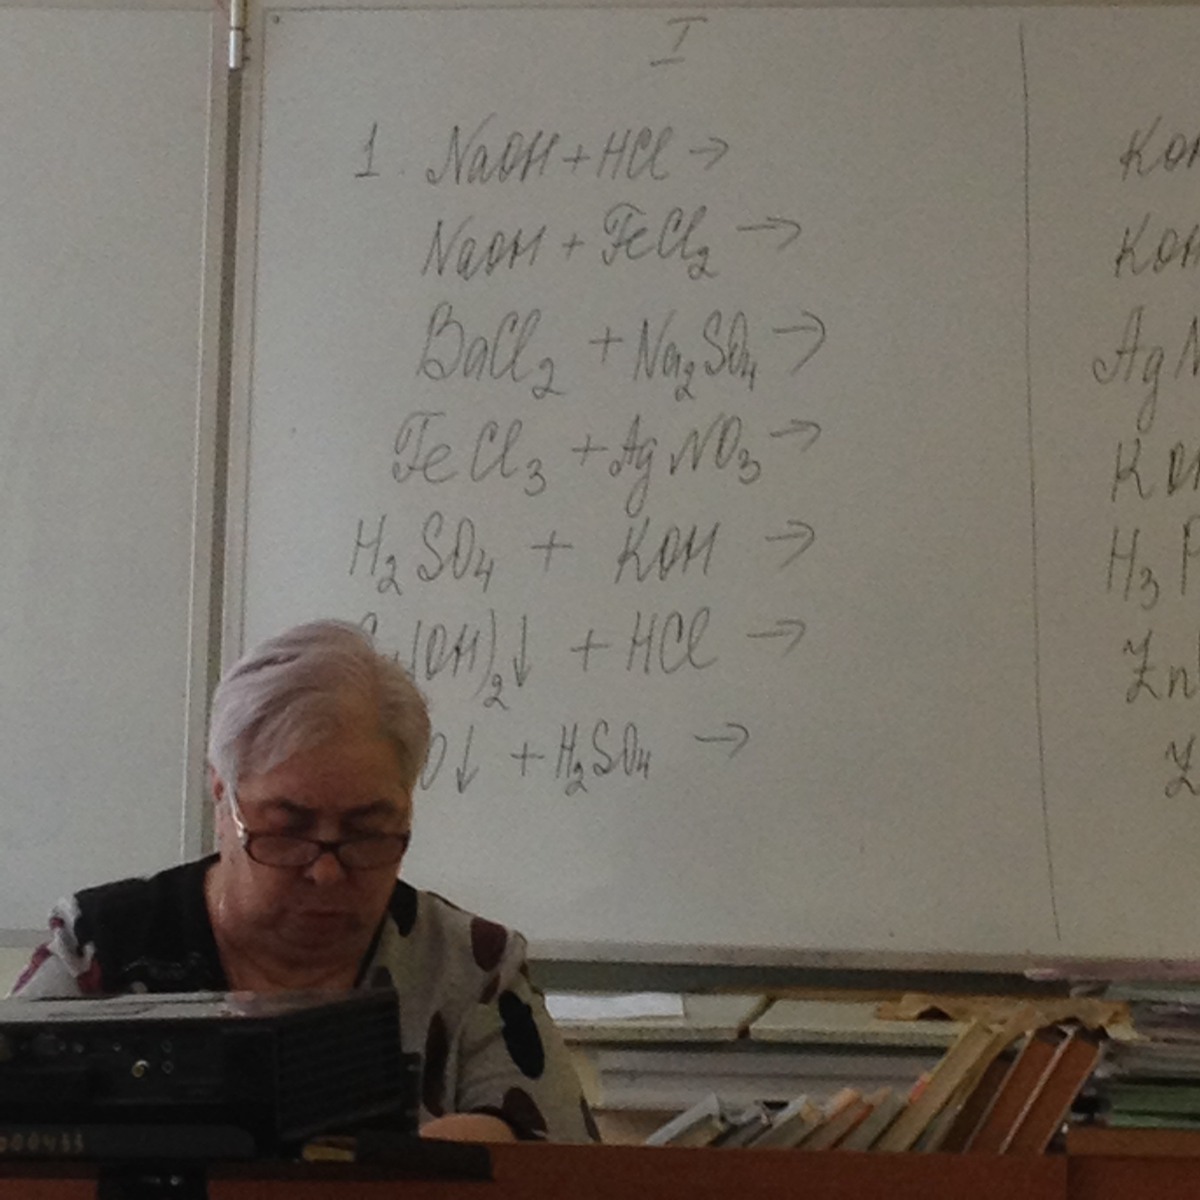 I
1. NaOH + HCl →
NaOH + FeCl₂ →
BaCl₂ + Na₂SO₄ →
FeCl₃ + AgNO₃ →
H₂SO₄ + KOH →
(OH)₂↓ + HCl →
O↓ + H₂SO₄ →
KOH
KOH
AgN
KOH
H₃P
Zn
Z